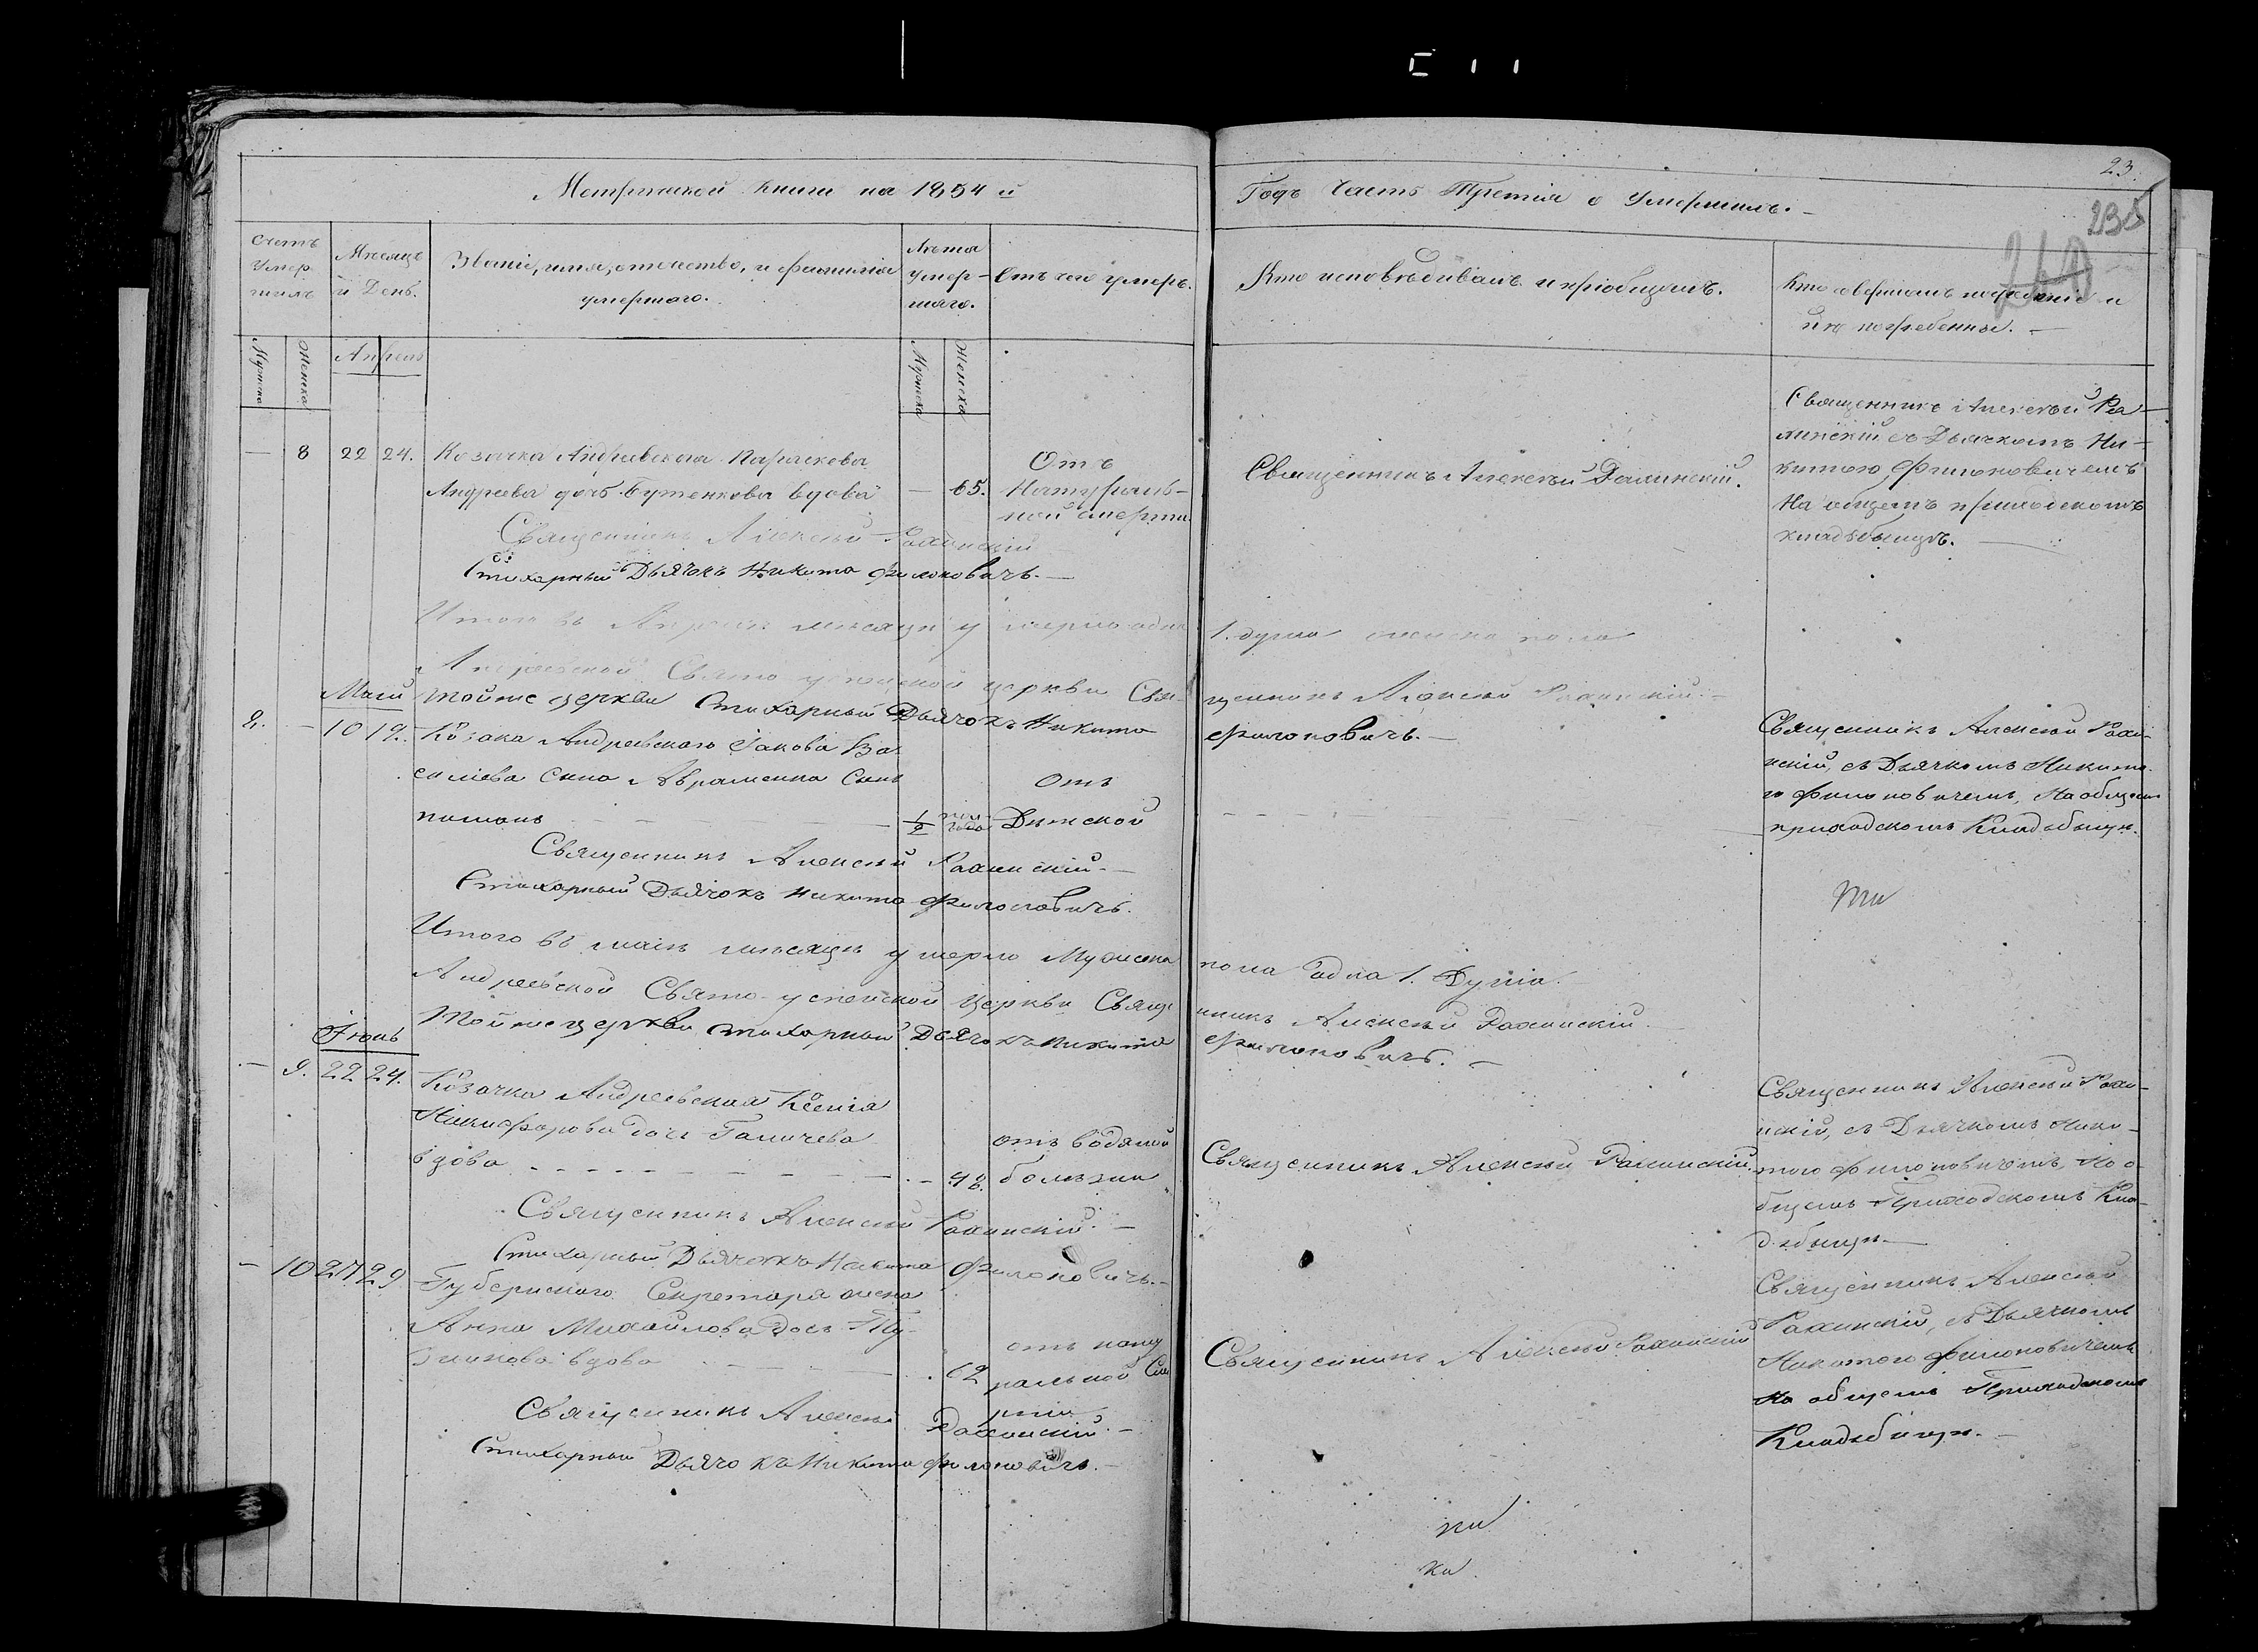 23.
235
Метрической книги на 1854 й
Годъ Часть Третія о Умершихъ. —
Счетъ Умершихъ
Мѣсяцъ и День.
Званіе, имя, отчество, и фамилія умершаго.
Лѣта умер-шаго.
Отъ чего умеръ.
Кто исповѣдывалъ и пріобщалъ.
Кто совершалъ погребеніе и
гдѣ погребенны. —
Мужеска
Женска
Апрель
Мужеска
Женска
— 8 22 24. Козачка Андреевская Параскева
Андреева дочь Бутенкова вдова — 65.
Отъ
Натураль-
ной смерти.
Священникъ Алексѣй Рахинскій.
Священникъ Алексѣй Ра-
хинскій съ Дьячкомъ Ни-
китою Филоновичемъ
На общемъ приходскомъ
кладѣбыщѣ. —
Священникъ Алексѣй Рахинскій
Стихарный Дьячокъ Никита Филоновичъ. —
Итого въ Апрелѣ мѣсяцѣ умерло одна
1. душа женска пола
Андреевской Свято успенской церкви Свя-
щенникъ Алексѣй Рахинскій —
тойже церкви Стихарный Дьячокъ Никита
Филоновичъ. —
Маій
2. — 10 12. Козака Андреевского Іакова Ва
силіева сына Авраменка сынъ
1/2 пол года
Отъ
Дѣтской
Священникъ Алексѣй Рахи-
нскій, съ Дьячкомъ Никито-
ю Филоновичемъ, На общемъ
приходскомъ Кладѣбыщѣ.
Священникъ Алексѣй Рахинскій —
Стихарный Дьячокъ Никита Филоновичъ.
Итого въ маіѣ мѣсяцѣ умерло Мужска
пола одна 1. Душа.
Андреевской Свято-успенской Церкви Свяще
нникъ Алексѣй Рахинскій.
Тойже церкви стихарный Дьячокъ Никита
Филоновичъ. —
Іюнь
— 9. 22 24. Козачка Андреевская Ксенія
Никифорова дочь Галичева
вдова — 48.
отъ водяной
болѣзни
Священникъ Алексѣй Рахинскій
Священникъ Алексѣй Рахи-
нскій, съ Дьячкомъ Ники-
тою Филоновичемъ, На о-
бщемъ Приходскомъ Кла-
дѣбыщѣ —
Священникъ Алексѣй Рахинскій. —
Стихарный Дьячокъ Никита Филоновичъ. —
— 10 27 29 Губернского Секретаря жена
Анна Михайлова дочь
вдова 62
отъ нату
ральной сме
ртіи
Священникъ Алексѣй Рахинскій
Священникъ Алексѣй
Рахинскій, съ Дьячкомъ
Никитою Филоновичемъ
На общемъ Приходскомъ
Кладѣбыщѣ. —
Священникъ Алексѣй Рахинскій. —
Стихарный Дьячокъ Никита Филоновичъ. —